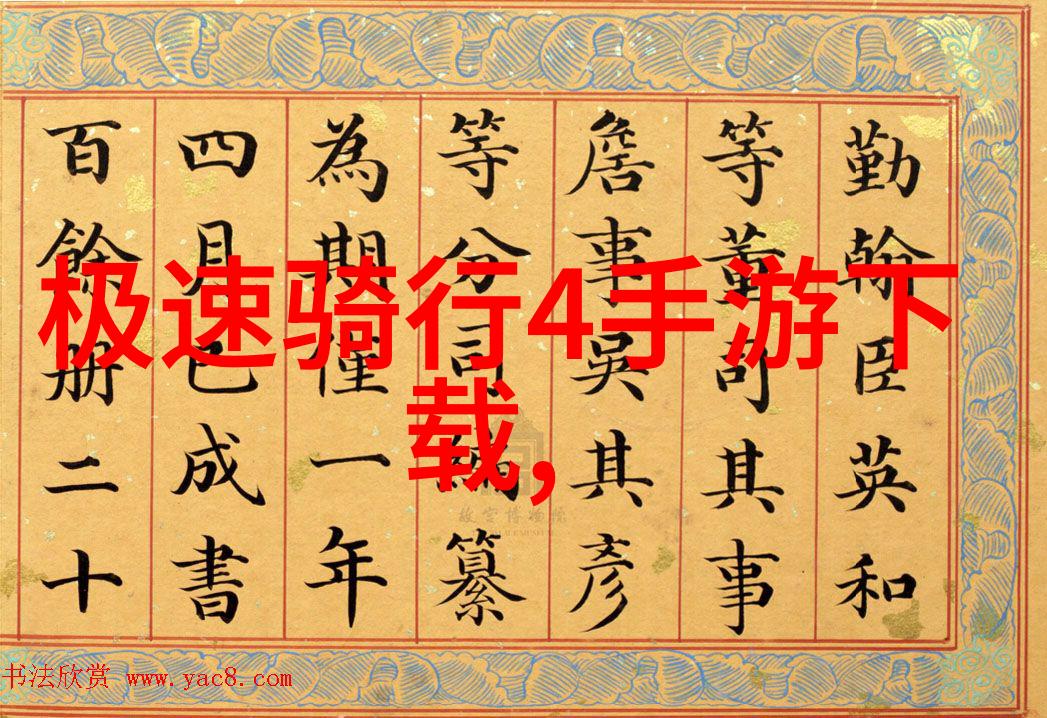 勤翰臣英和
等董司其事
詹事吳其彥
等分司編纂
為期僅一年
四月已成書
百餘册二十
极速骑行4手游下
载,
故宫博物院
书法欣赏 www.yac8.com